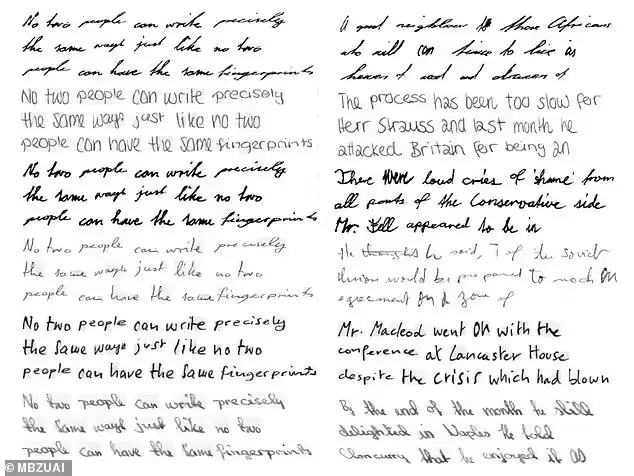 No two people can write precisely
the same ways just like no two
people can have the same fingerprints
No two people can write precisely
the same ways just like no two
people can have the same fingerprints
No two people can write precisely
the same ways just like no two
people can have the same fingerprints
No two people can write precisely
the same ways just like no two
people can have the same fingerprints
No two people can write precisely
the same ways just like no two
people can have the same fingerprints
No two people can write precisely
the same ways just like no two
people can have the same fingerprints
A good neighbour to those Africans
who will to live as
hewers of wood and drawers of
The process has been too slow for
Herr Strauss and last month he
attacked Britain for being an
There were loud cries of 'shame' from
all parts of the Conservative side
Mr. appeared to be in
He thoughts he said, of the soviet
would be prepared to reach an
agreement on a zone of
Mr. Macleod went on with the
conference at Lancaster House
despite the crisis which had blown
By the end of the month he still
delighted in Naples he told
Cloncurry that he enjoyed it as
© MBZUAI